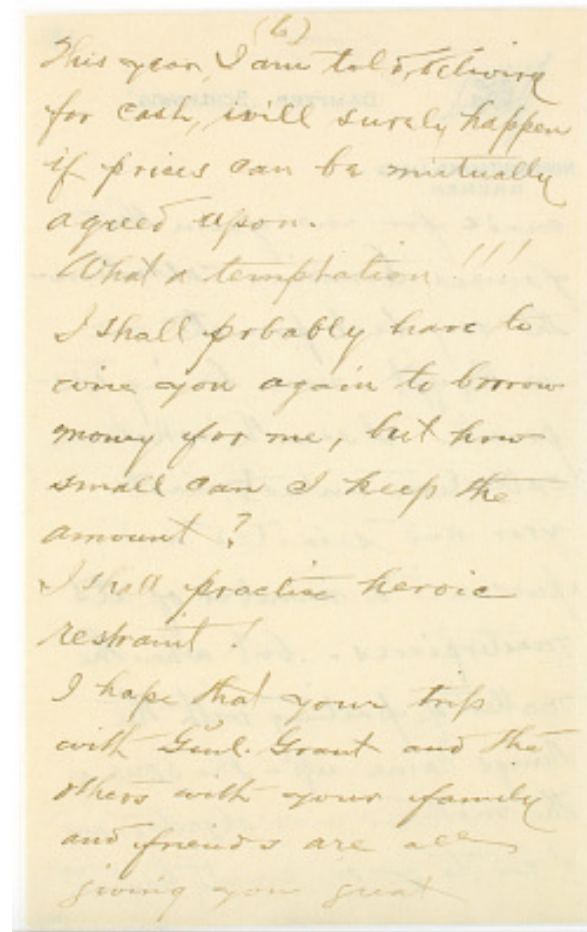 (6)
This year, I am told, delivery
for cash, will surely happen
if prices can be mutually
agreed upon.
What a temptation!!!
I shall probably have to
wire you again to borrow
money for me, but how
small can I keep the
amount?
I shall practise heroic
restraint!
I hope that your trip
with Genl. Grant and the
others with your family
and friends are all
giving you great